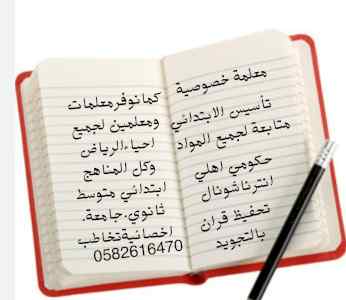 معلمة خصوصية
تأسيس الابتدائي
متابعة لجميع المواد
حكومي اهلي
انترناشونال
تحفيظ قران
بالتجويد
كما نوفر معلمات
ومعلمين لجميع
احياءالرياض
وكل المناهج
ابتدائي متوسط
ثانوي.جامعة.
اخصائيةتخاطب
0582616470